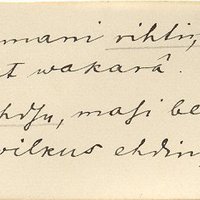 mani rihtīi,
t wakarâ.
hdsu, masi be
wilkus ehdin